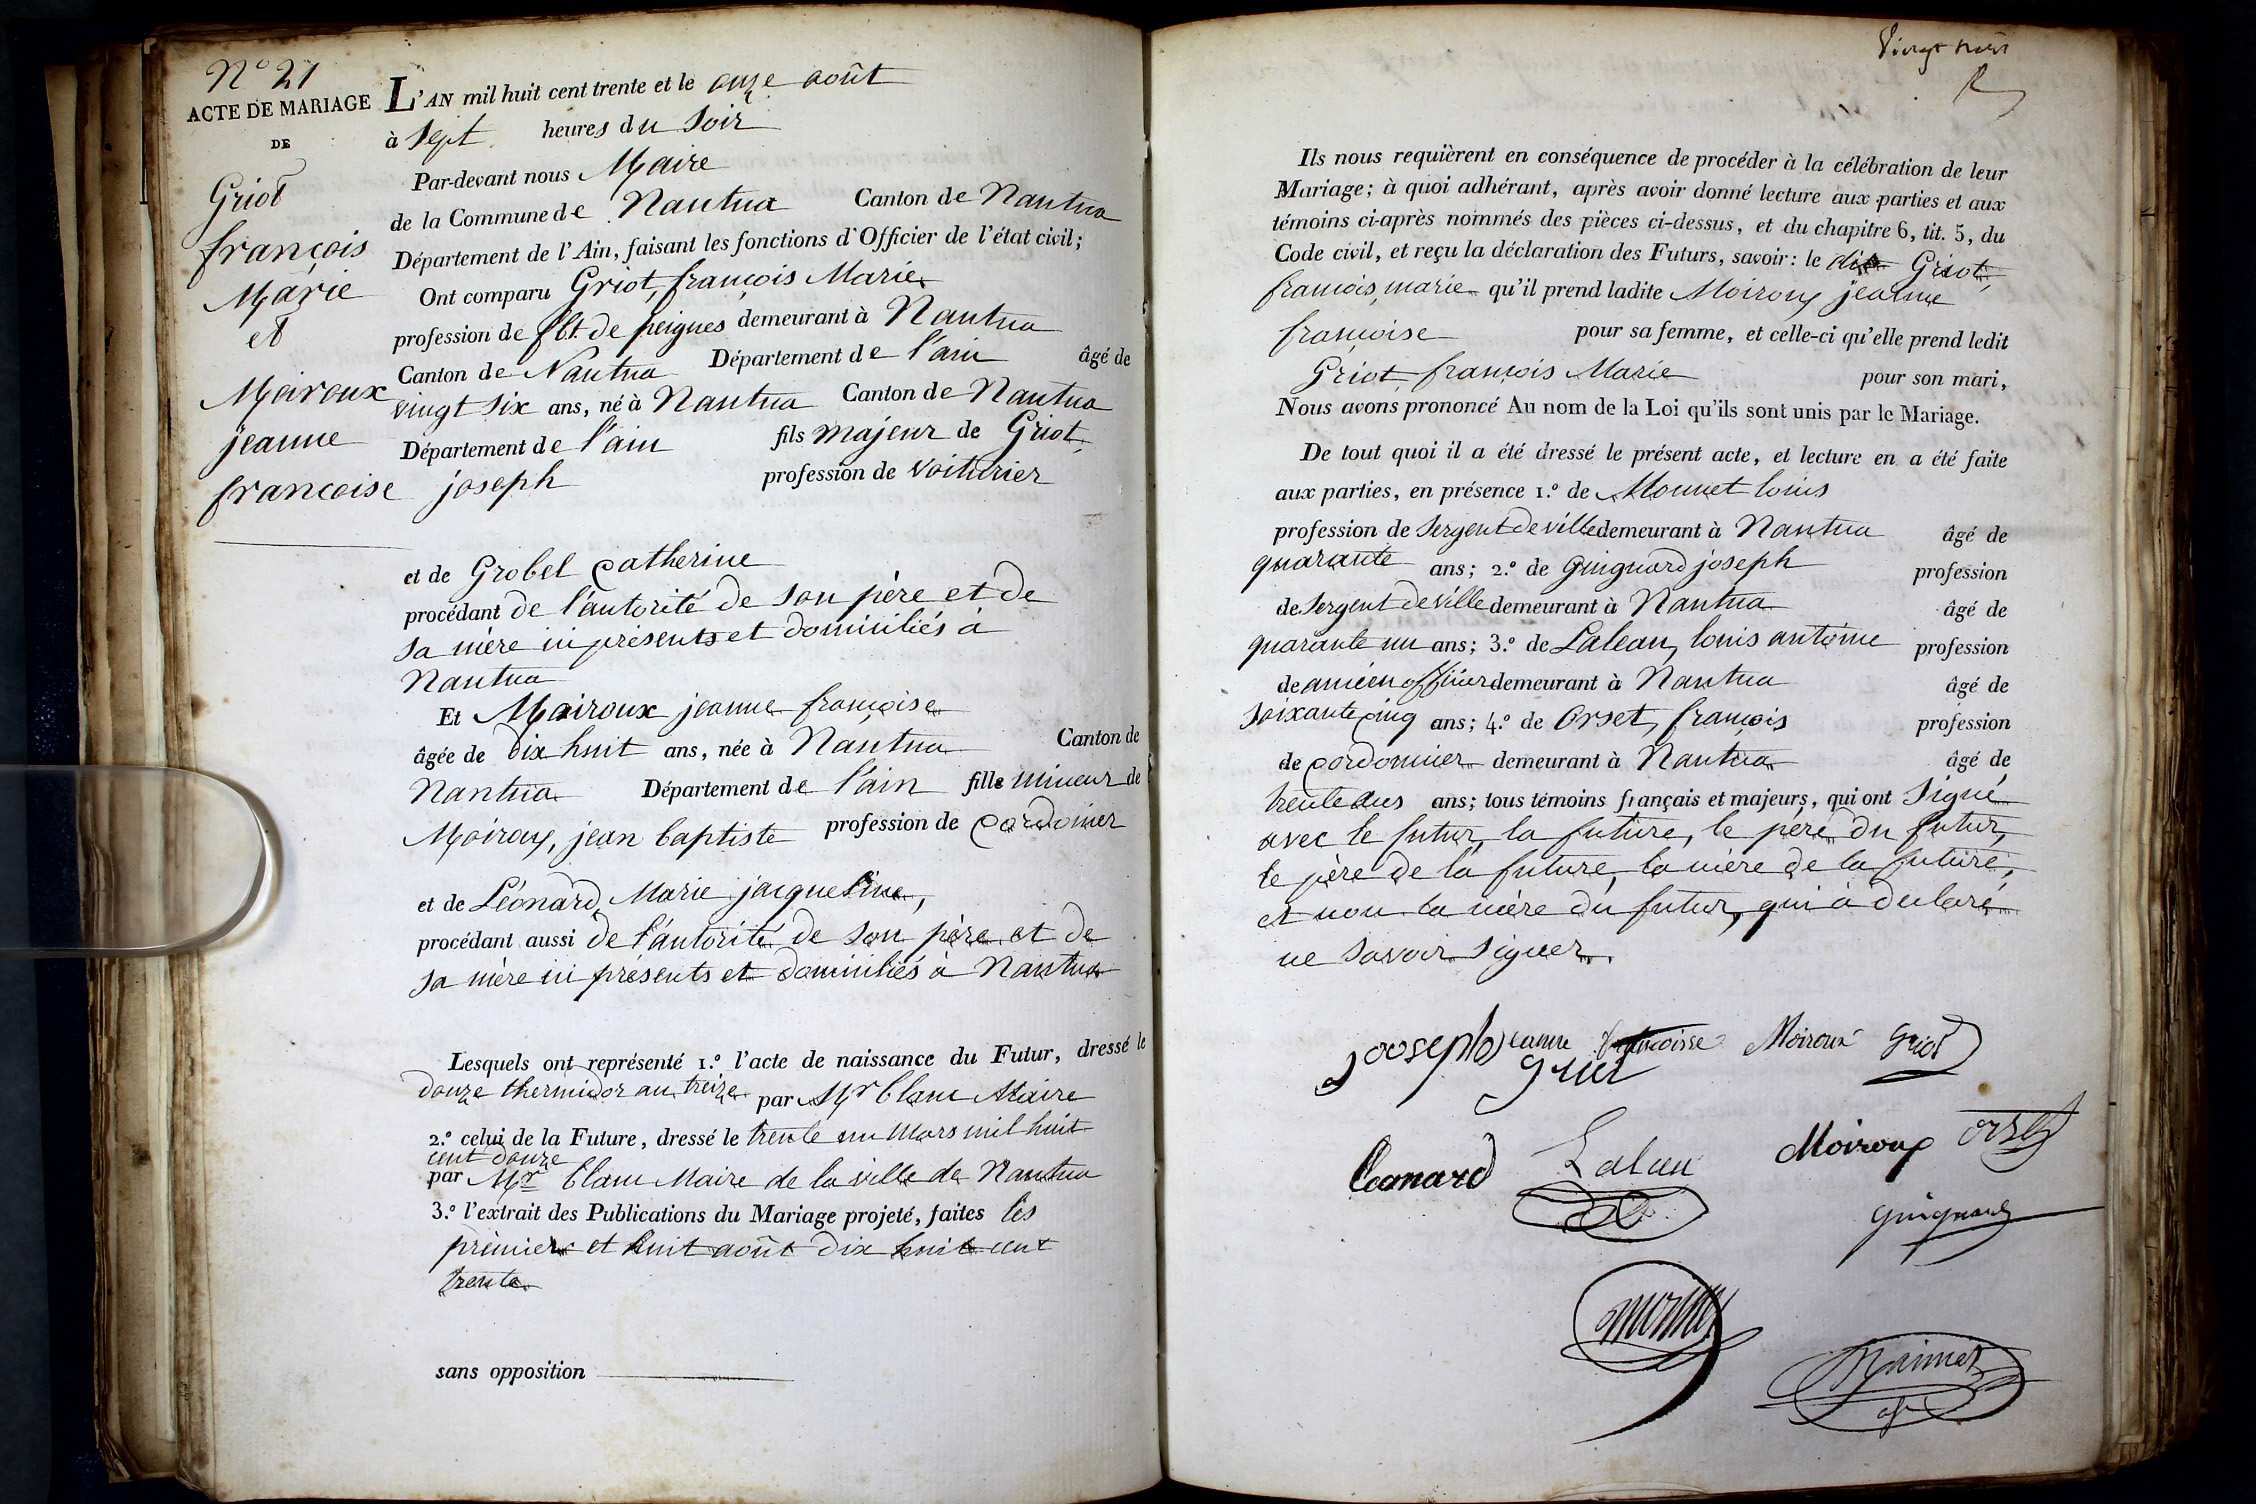 N° 21
ACTE DE MARIAGE
DE
Griot
françois
Marie
et
Moiroux
jeanne
francoise
L'AN mil huit cent trente et le onze août
à sept heures du soir
Par-devant nous Maire
de la Commune de Nantua Canton de Nantua
Département de l'Ain, faisant les fonctions d'Officier de l'état civil;
Ont comparu Griot, françois Marie
profession de fbt. de peignes demeurant à Nantua
Canton de Nantua Département de l'ain âgé de
vingt six ans, né à Nantua Canton de Nantua
Département de l'ain fils majeur de Griot,
joseph profession de voiturier
et de Grobel Catherine
procédant de l'autorité de son père et de
sa mère ici présents et domiciliés à
Nantua
Et Moiroux jeanne françoise
âgée de dix huit ans, née à Nantua Canton de
Nantua Département de l'ain fille mineur de
Moiroux, jean baptiste profession de cordonier
et de Léonard, Marie jacqueline,
procédant aussi de l'autorité de son père et de
sa mère ici présents et domiciliés à Nantua
Lesquels ont représenté 1.° l'acte de naissance du Futur, dressé le
douze thermidor an treize par Mr blanc Maire
2.° celui de la Future, dressé le trente un Mars mil huit
cent douze
par Mr blanc Maire de la ville de Nantua
3.° l'extrait des Publications du Mariage projeté, faites les
premier et huit août dix huit cent
trente
sans opposition
Vingt trois
Ils nous requièrent en conséquence de procéder à la célébration de leur
Mariage; à quoi adhérant, après avoir donné lecture aux parties et aux
témoins ci-après nommés des pièces ci-dessus, et du chapitre 6, tit. 5, du
Code civil, et reçu la déclaration des Futurs, savoir: le dit Griot,
francois, marie qu'il prend ladite Moiroux jeanne
françoise pour sa femme, et celle-ci qu'elle prend ledit
Griot, françois Marie pour son mari,
Nous avons prononcé Au nom de la Loi qu'ils sont unis par le Mariage.
De tout quoi il a été dressé le présent acte, et lecture en a été faite
aux parties, en présence 1.° de Monnet louis
profession de sergent de ville demeurant à Nantua âgé de
quarante ans; 2.° de Guignard joseph profession
de sergent de ville demeurant à Nantua âgé de
quarante un ans; 3.° de Laleau, louis antoine profession
de ancien officier demeurant à Nantua âgé de
soixante cinq ans; 4.° de Orset, françois profession
de cordonnier demeurant à Nantua âgé de
trente deus ans; tous témoins français et majeurs, qui ont signé
avec le futur, la future, le père du futur,
le père de la future, la mère de la future,
et non la mère du futur, qui à déclaré
ne savoir signer.
jooseph jeanne francoisse Moiroux griot
griot
Leonard Laleau Moiroux orset
guignard
monnet